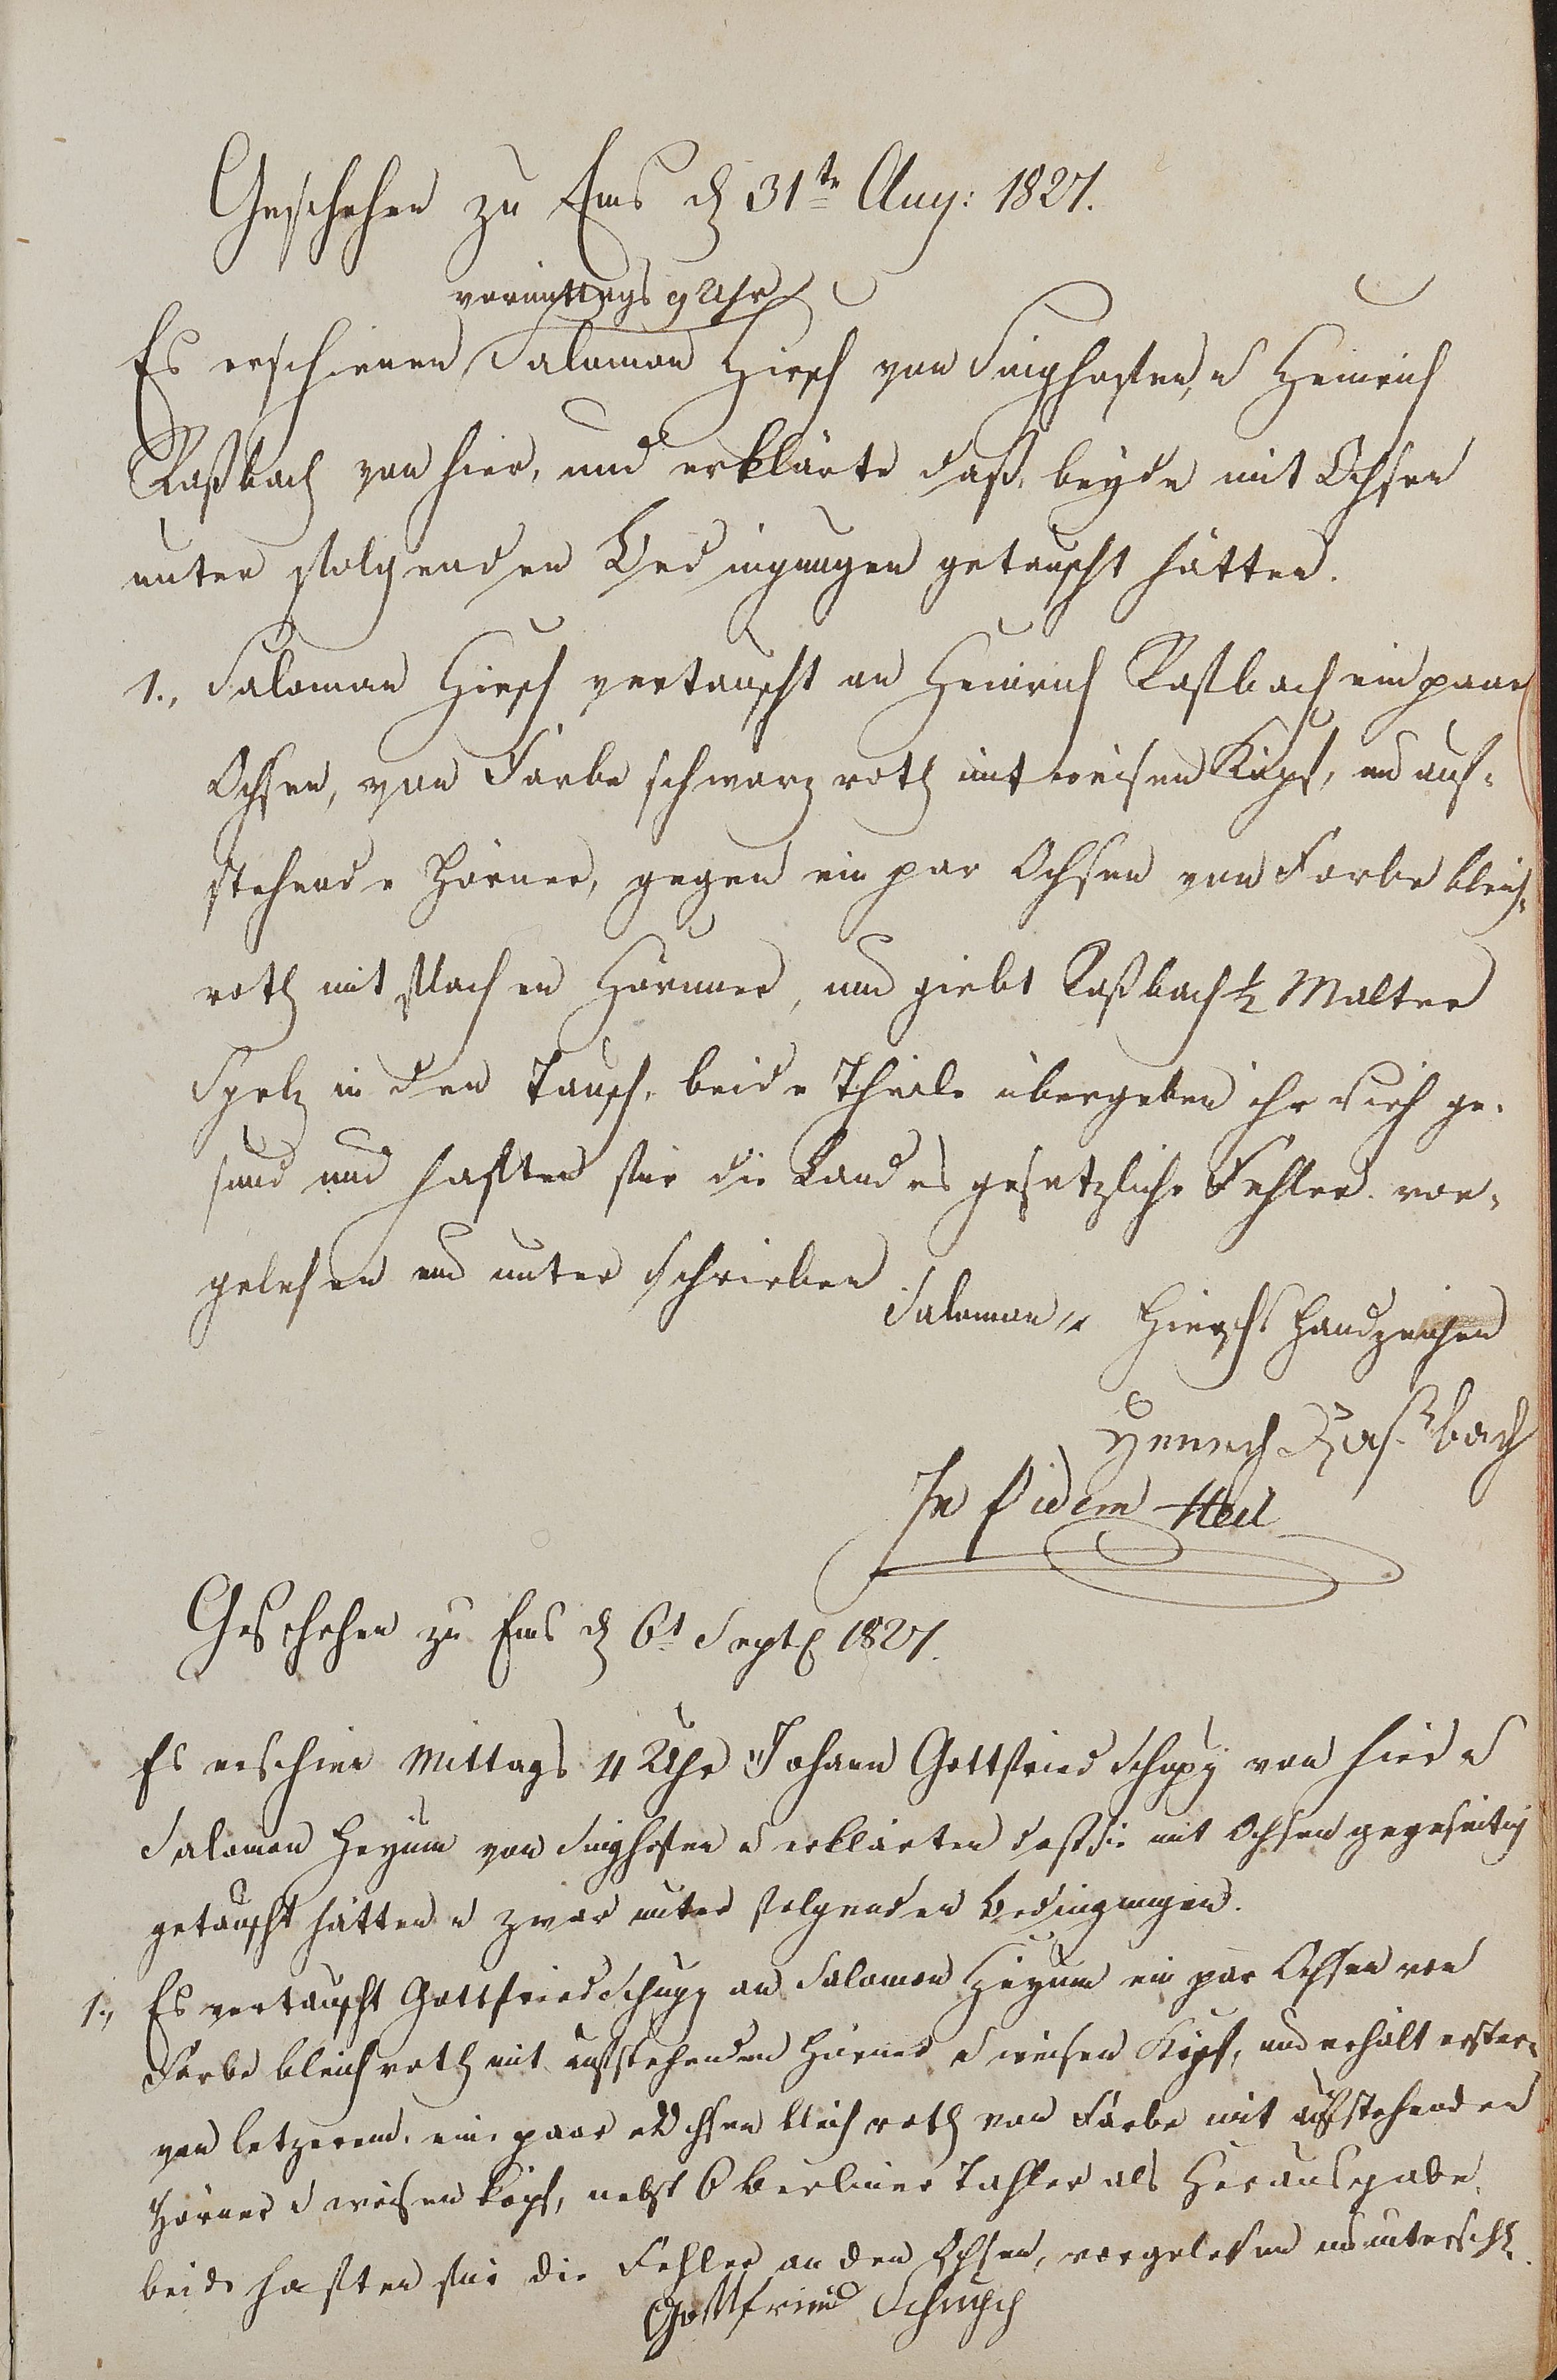 Geschehen zu Ems d 31te Aug: 1827.
vormittags 9 Uhr
Es erschienen Salomon Hirsch von Singhofen, u Heinrich
Raßbach von hier, und erklärte daß, beyde mit Ochsen
unter folgenden Bedingungen getauscht hätten.
1., Salomon Hirsch vertauscht an Heinrich Raßbach ein paar
Ochsen, von Farbe schwarz roth mit weisen Köpf, und auf-
stehende Hörner, gegen ein par Ochsen von Farbe bleich-
roth mit flachen Hörnner, und giebt Raßbach ½ Malter
Spelz in den Tausch, beide Theile übergeben ihr Vieh ge-
sund und haften für die Landes gesetzliche Fehler. vor-
gelesen und unter schrieben
Salomon Hirschs Handzeichen
Henrich Raßbach
In fidem
Geschehen zu Ems d 6t Sept 1827.
Es erschien Mittags 4 Uhr Johann Gottfried Schupp von hier u
Salomon Heyum von Singhofen u erklärten daß sie mit Ochsen gegeseitig
getauscht hätten u zwar unter folgenden Bedingungen.
1., Es vertauscht Gottfried Schupp an Salomon Heyum ein par Ochsen von
Farbe bleich roth mit aufstehenden Hörner u weisen Köpf, und erhält erster-
von letzerem. eine paar Ochsen bleich roth von Farbe mit aufstehenden
Hörner u weisen köpf, nebst 6 Berliner Tahler als Herausgabe.
beide haften für die Fehler an den Ochsen, vorgelesen und unterschr.
Gottfried Schupp